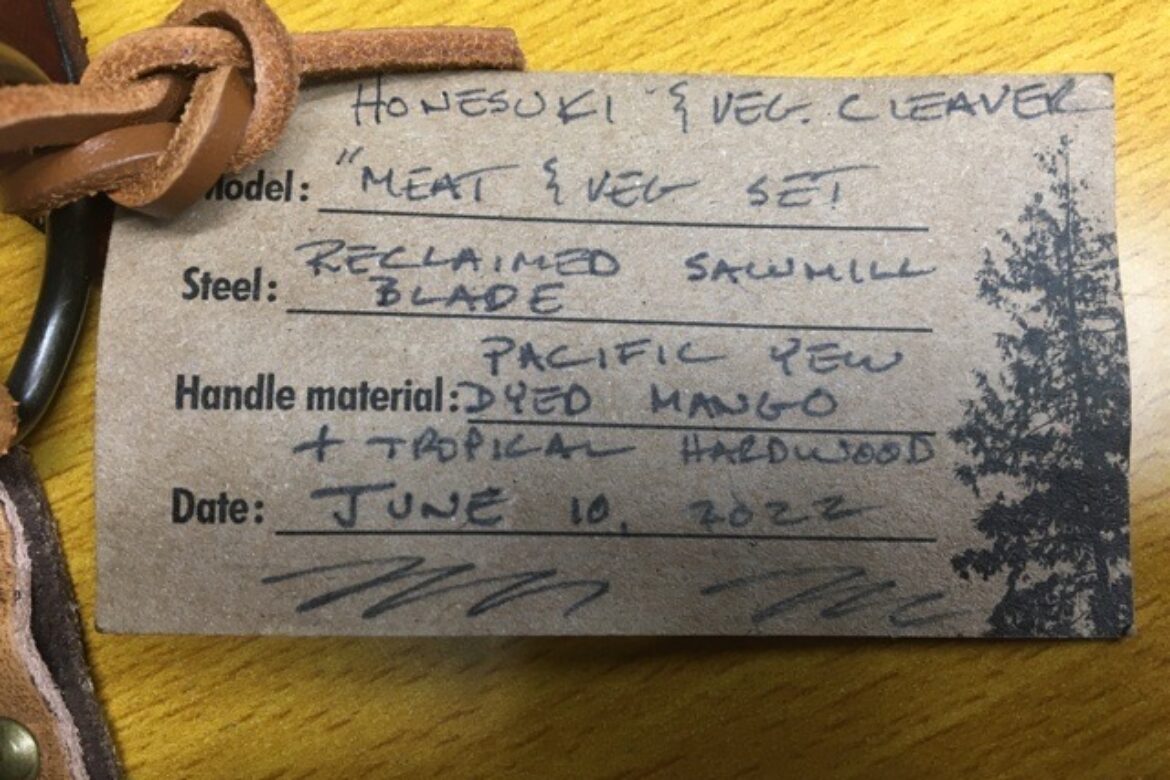 HONESUKI & VEG. CLEAVER
Model: "MEAT & VEG SET
Steel: RECLAIMED SAWMILL
BLADE
PACIFIC YEW
Handle material: DYED MANGO
+ TROPICAL HARDWOOD
Date: JUNE 10, 2022